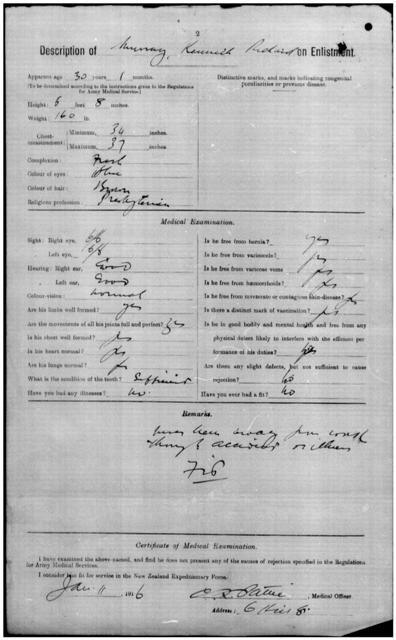 2
Description of Murray, Kenneth Richard on Enlistment.
Apparent age 30 years 1 months.
(To be determined according to the instructions given in the Regulations for Army Medical Service.)
Height: 5 feet 8 inches.
Weight: 160 lb.
Chest-measurement: Minimum, 34 inches.
Maximum, 37 inches.
Complexion: Fresh
Colour of eyes: Blue
Colour of hair: Brown
Religious profession: Presbyterian
Distinctive marks, and marks indicating congenital peculiarities or previous disease.
Medical Examination.
Sight: Right eye, 6/6
Left eye, 6/6
Hearing: Right ear, Good
Left ear, Good
Colour-vision: normal
Are his limbs well formed? yes
Are the movements of all his joints full and perfect? yes
Is his chest well formed? yes
Is his heart normal? yes
Are his lungs normal? yes
What is the condition of the teeth? Sufficient
Have you had any illnesses? no.
Is he free from hernia? yes
Is he free from varicocele? yes
Is he free from varicose veins? yes
Is he free from hæmorrhoids? yes
Is he free from inveterate or contagious skin-disease? yes
Is there a distinct mark of vaccination? yes
Is he in good bodily and mental health and free from any physical defects likely to interfere with the efficient performance of his duties? yes
Are there any slight defects, but not sufficient to cause rejection? no
Have you ever had a fit? no
Remarks.
never been away from work
through accident or illness
Fit
Certificate of Medical Examination.
I have examined the above-named, and find he does not present any of the causes of rejection specified in the Regulations for Army Medical Services.
I consider him fit for service in the New Zealand Expeditionary Force.
Jan 11 1916
, Medical Officer.
Address: